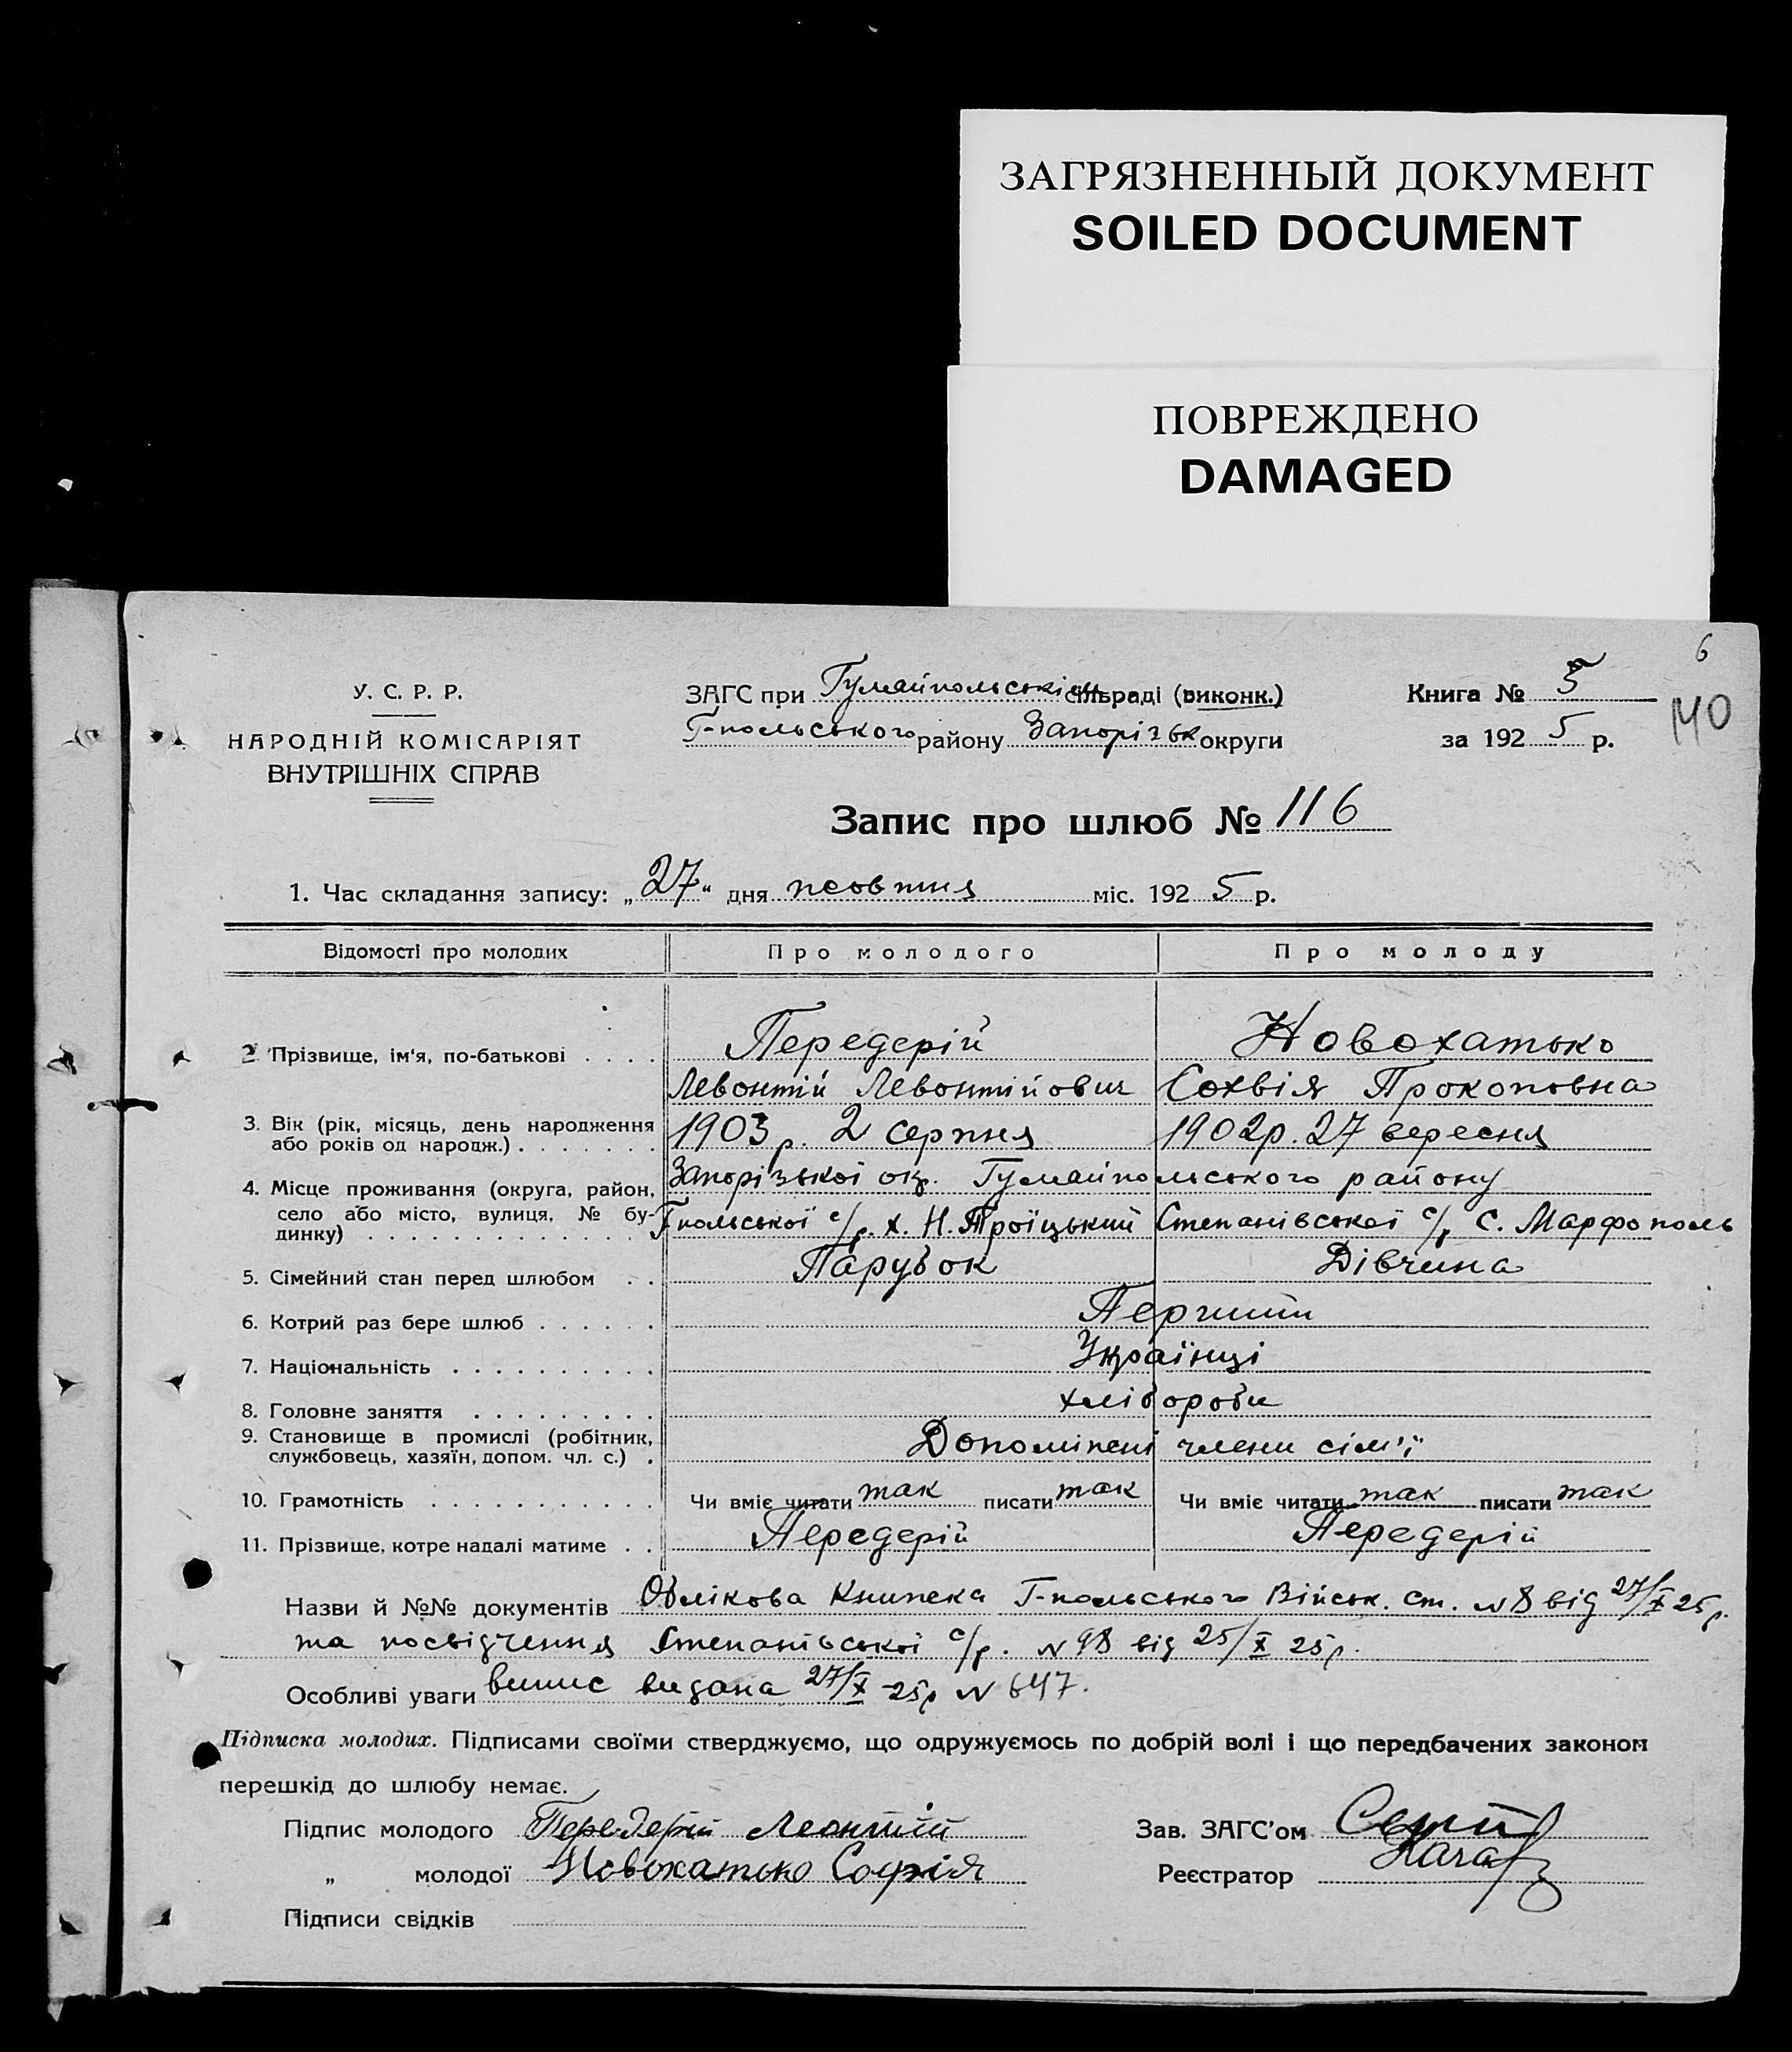 ЗАГРЯЗНЕННЫЙ ДОКУМЕНТ
SOILED DOCUMENT
ПОВРЕЖДЕНО
DAMAGED
6
140
У. С. Р. Р.
НАРОДНІЙ КОМІСАРІЯТ
ВНУТРІШНІХ СПРАВ
ЗАГС при Гуляйпольськім сільраді (виконк.)
Г-польського району Запорізьк округи
Книга № 5
за 1925 р.
Запис про шлюб № 116
1. Час складання запису: „27" дня жовтня міс. 1925 р.
Відомості про молодих Про молодого Про молоду
2. Прізвище, ім'я, по-батькові . . . . Передерій Новохатько
Левонтій Левонтійович Сохвія Прокоповна
3. Вік (рік, місяць, день народження
або років од народж.) . . . . . . . 1903 р. 2 серпня 1902р. 27 вересня
4. Місце проживання (округа, район, Запорізької окр. Гуляйпольського району
село або місто, вулиця, № бу-
динку) . . . . . . . . . . . . . . Гпольської с/р. х. Н. Троїцький Степанівської с/р С. Марфополь
5. Сімейний стан перед шлюбом . . Парубок Дівчина
6. Котрий раз бере шлюб . . . . . . Перший
7. Національність . . . . . . . . . . Українці
8. Головне заняття . . . . . . . . . хлібороби
9. Становище в промислі (робітник,
службовець, хазяїн, допом. чл. с.) . Допоміжні члени сім'ї
10. Грамотність . . . . . . . . . . . Чи вміє читати так писати так Чи вміє читати так писати так
11. Прізвище, котре надалі матиме . . Передерій Передерій
Назви й №№ документів Облікова Книжка Г-польського Військ. ст. № 8 від 27/X 25р.
та посвідчення Степанівської с/р. № 98 від 25/X 25р.
Особливі уваги випис видана 27/X -25р № 647.
Підписка молодих. Підписами своїми стверджуємо, що одружуємось по добрій волі і що передбачених законом
перешкід до шлюбу немає.
Підпис молодого Передерій Леонтій
Зав. ЗАГС'ом
„ молодої Новохатько Софія
Реєстратор
Підписи свідків